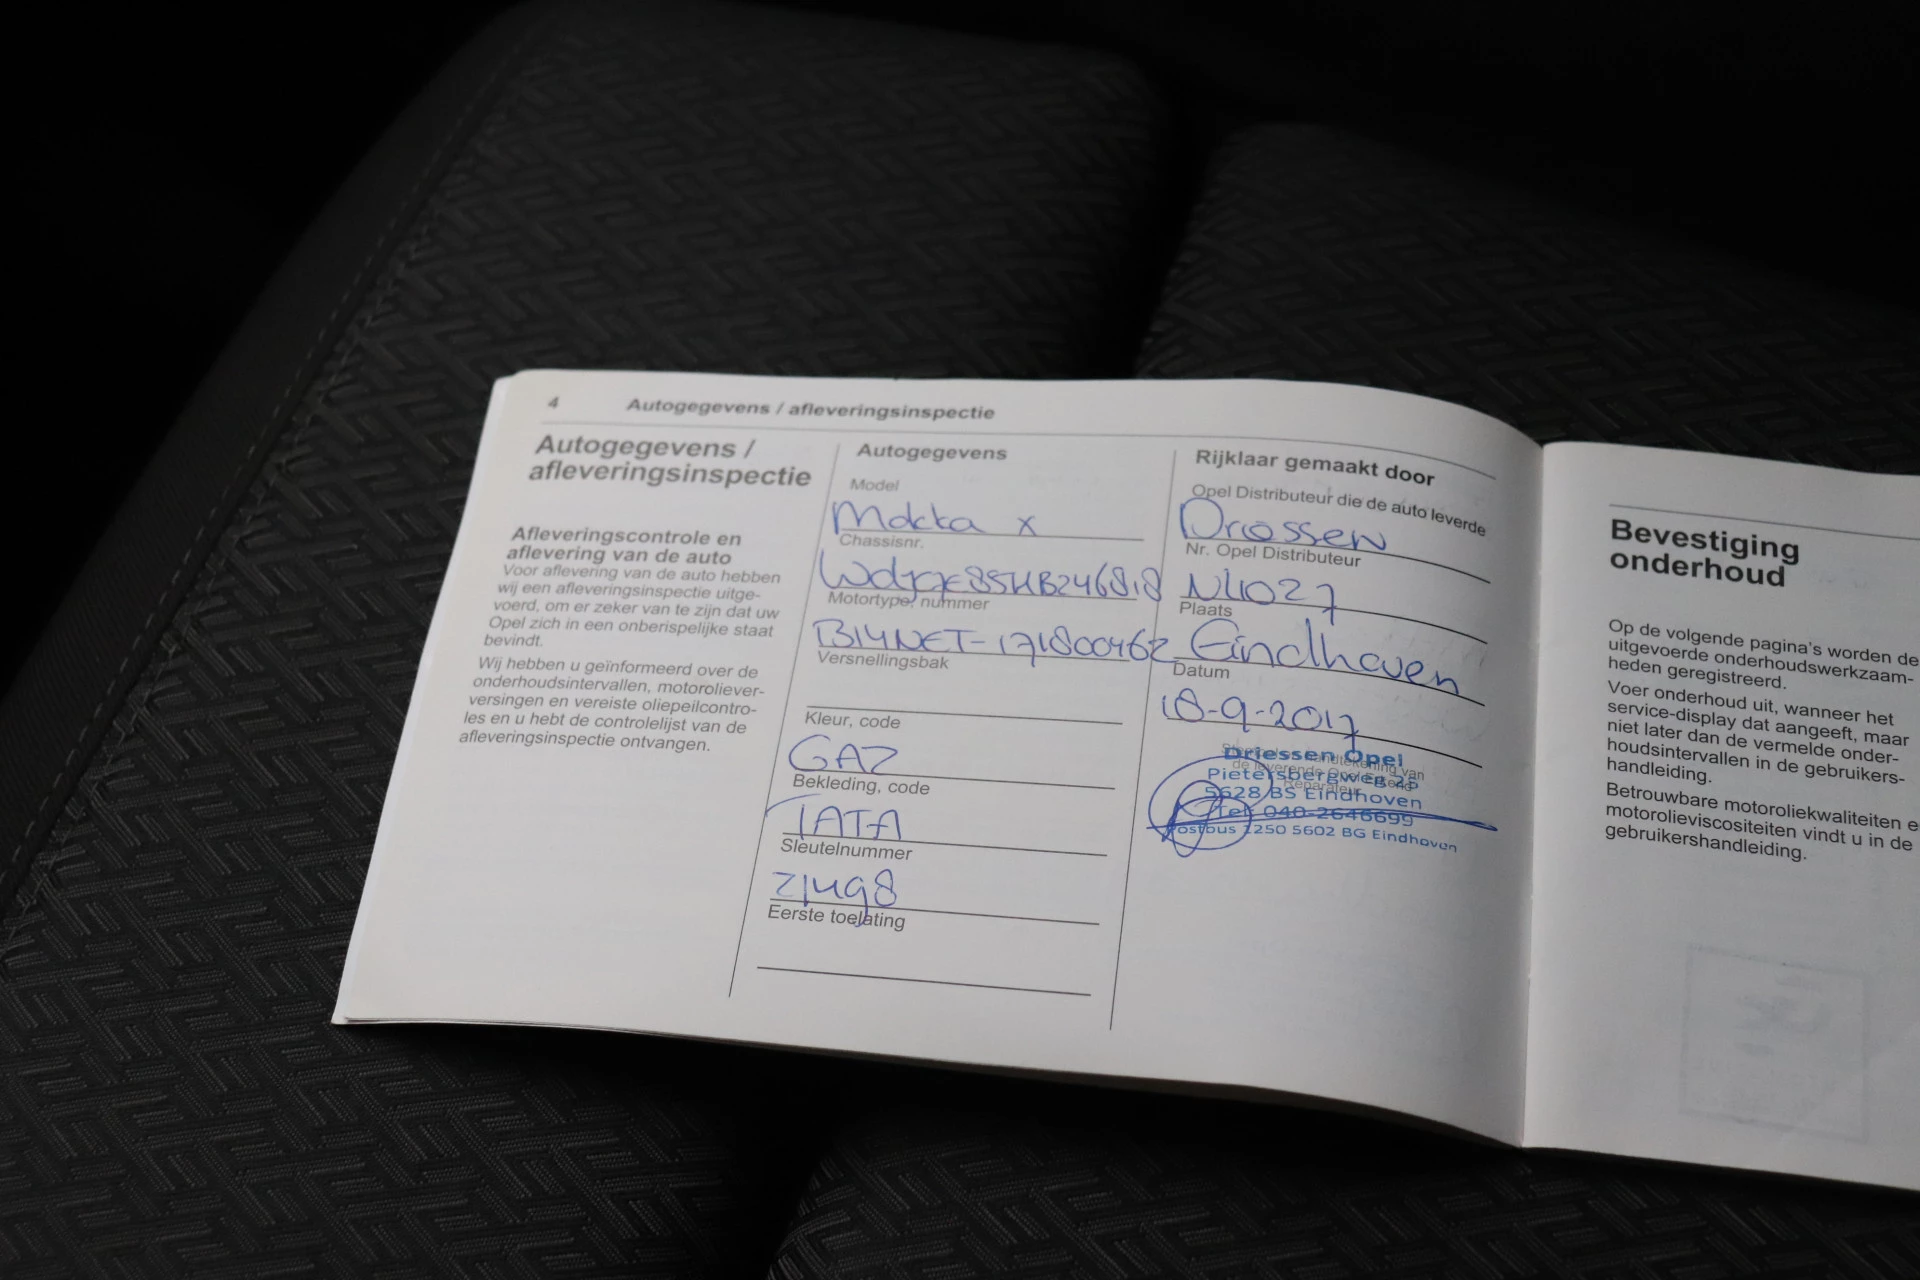 4 Autogegevens / afleveringsinspectie
Autogegevens /
afleveringsinspectie
Afleveringscontrole en
aflevering van de auto
Voor aflevering van de auto hebben
wij een afleveringsinspectie uitge-
voerd, om er zeker van te zijn dat uw
Opel zich in een onberispelijke staat
bevindt.
Wij hebben u geïnformeerd over de
onderhoudsintervallen, motoroliever-
versingen en vereiste oliepeilcontro-
les en u hebt de controlelijst van de
afleveringsinspectie ontvangen.
Autogegevens
Model
Mokka x
Chassisnr.
Motortype, nummer
B14NET-171800462
Versnellingsbak
Kleur, code
GAZ
Bekleding, code
IATA
Sleutelnummer
Z1498
Eerste toelating
Rijklaar gemaakt door
Opel Distributeur die de auto leverde
Nr. Opel Distributeur
NL1027
Plaats
Eindhoven
Datum
18-9-2017
Driessen Opel
Pietersbergweg 25
5628 BS Eindhoven
Tel. 040-2646699
Postbus 7250 5602 BG Eindhoven
Bevestiging
onderhoud
Op de volgende pagina's worden de
uitgevoerde onderhoudswerkzaam-
heden geregistreerd.
Voer onderhoud uit, wanneer het
service-display dat aangeeft, maar
niet later dan de vermelde onder-
houdsintervallen in de gebruikers-
handleiding.
Betrouwbare motoroliekwaliteiten e
motorolieviscositeiten vindt u in de
gebruikershandleiding.